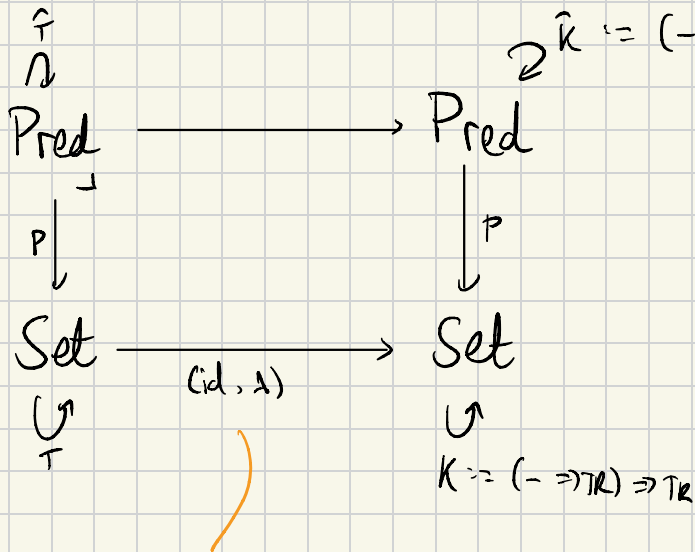 T̂
K̂ := (-
Pred
Pred
P
P
Set
Set
(id, λ)
T
K := (- ⇒ TR) ⇒ TR